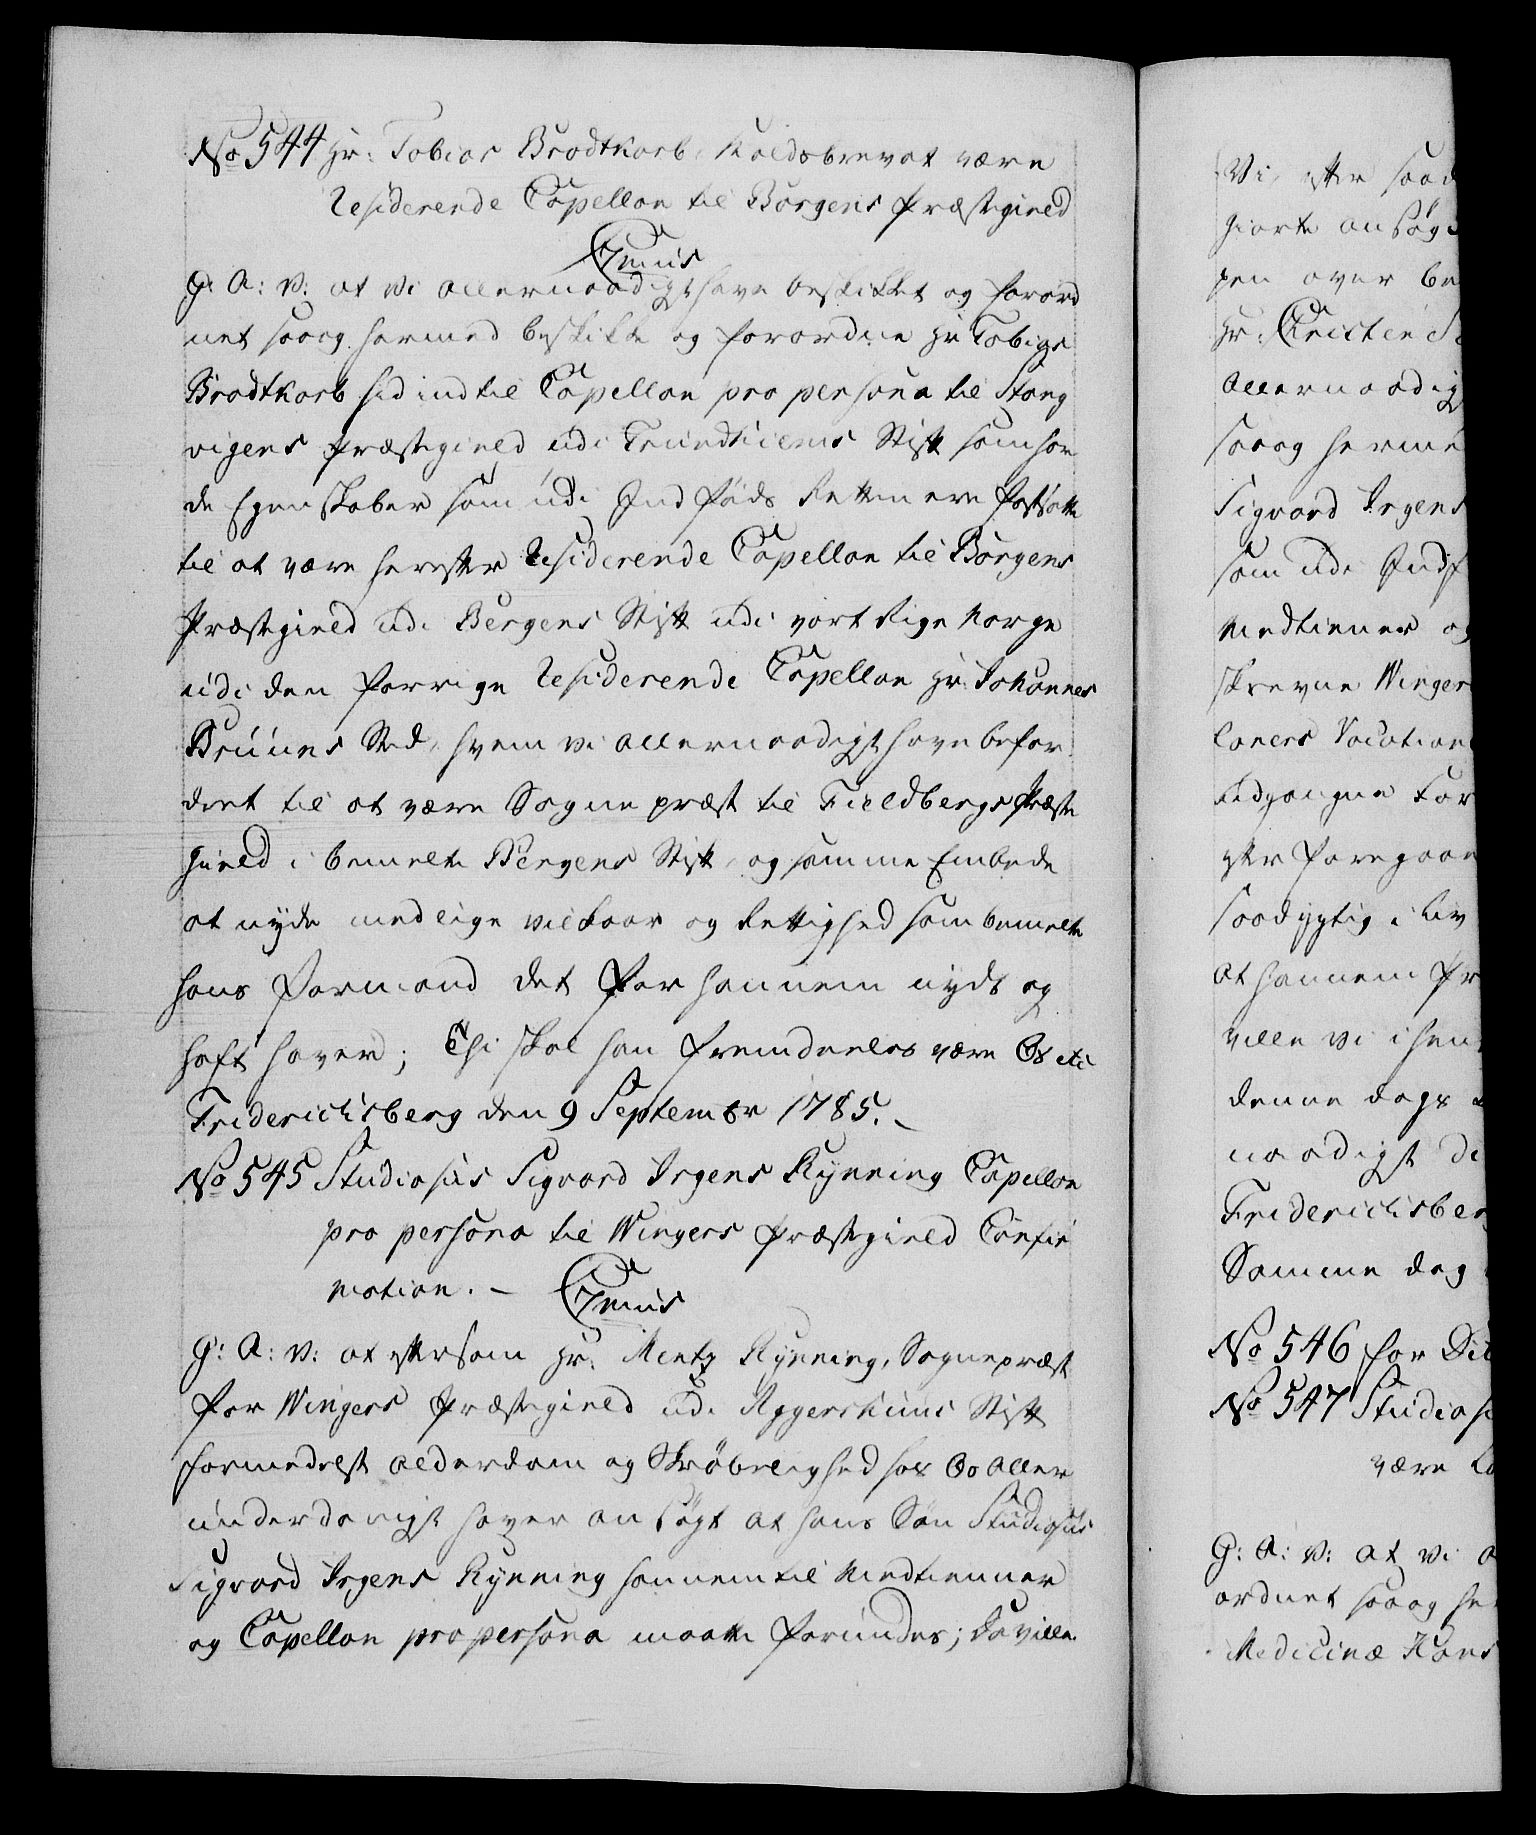 No 544 Hr: Tobias Brodtkorb, Kaldsbrev at være
Residerende Capellan til Borgens Præstegield
C 7mus
G: A: V: at Vi allernaadigst have beskikket og forord
net saa og hermed beskikke og forordne Hr Tobias
Brodtkorb hid indtil Capellan pro persona til Stang
vigens Præstegield udi Trundhiems Stift som har
de Egenskaber som udi Indføds Retten ere fastsatte
til at være herefter Residerende Capellan til Borgens
Præstegield udi Bergens Stift udi vort Rige Norge
udi den forrige Residerende Capellan Hr: Johannes
Bruuns Sted, hvem vi allernaadigst have befor
dret til at være Sogne præst til Fieldbergs Præste
gield i bemelte Bergens Stift, og samme Embede
at nyde med lige vilkaar og Rettighed som bemelte
hans Formand det for hannem nydt og
haft haver; Thi skal han fremdeeles være Os etc
Friderichsberg den 9 Septembr 1785.
No 545 Studiosus Sigvard Irgens Rynning Capellan
pro persona til Wingers Præstegield Confir
mation. - C 7mus
G: A: V: at eftersom Hr: Mentz Rynning, Sognepræst
for Wingers Præstegield udi Aggershuus Stift
formedelst Alderdom og Skrøbelighed hos Os aller
underdanigst haver ansøgt at hans Søn Studiosus
Sigvard Irgens Rynning hannem til Medtienner
og Capellan pro persona maatte forundes; Da ville
Vi, efter saad
giorte ansøg
pen over be
Hr: Christen
Allernaadig
saa og herme
Sigvard Irgens
som udi Indf
Medtiener og
skrevne Winger
laners Vocation
Lidgangne For
efter foregaae
saa dygtig i Liv
at hannem Pr
ville vi i hen
denne dags
naadigst
Friderichsber
Samme dag
No 546 for
No 547 Studios
være
G: A: V: at vi
ordnet saa og he
Medicinæ Hans